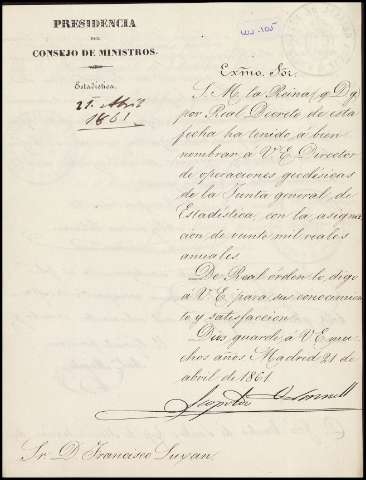 PRESIDENCIA
DEL
CONSEJO DE MINISTROS.
Estadística.
21. Abril
1861
Exmo. Sor.
S. M. la Reina (q. D. g.)
por Real Decreto de esta
fecha ha tenido á bien
nombrar á V. E. Director
de operaciones geodésicas
de la Junta general de
Estadística, con la asigna
cion de veinte mil reales
anuales.
De Real órden lo digo
á V. E. para su conocimien
to y satisfaccion.
Dios guarde á V. E. mu
chos años. Madrid 21 de
abril de 1861.
Leopoldo O'Donnell
Sr. D. Francisco Luxan.